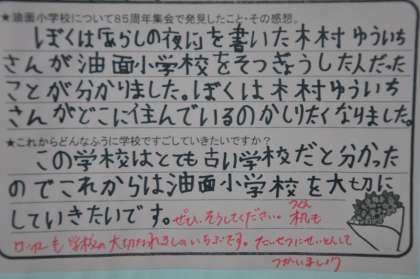 ★油面小学校について85周年集会で発見したこと・その感想。
ぼくは「あらしの夜に」を書いた木村ゆういち
さんが油面小学校をそつぎょうした人だった
ことが分かりました。ぼくは木村ゆういち
さんがどこに住んでいるのかしりたくなりました。
★これからどんなふうに学校ですごしていきたいですか？
この学校はとても古い学校だと分かった
のでこれからは油面小学校を大切に
していきたいです。ぜひ、そうしてください。つくえ
机も
ロッカーも学校の大切な
のいちぶです。たいせつにせいとんして
つかいましょう